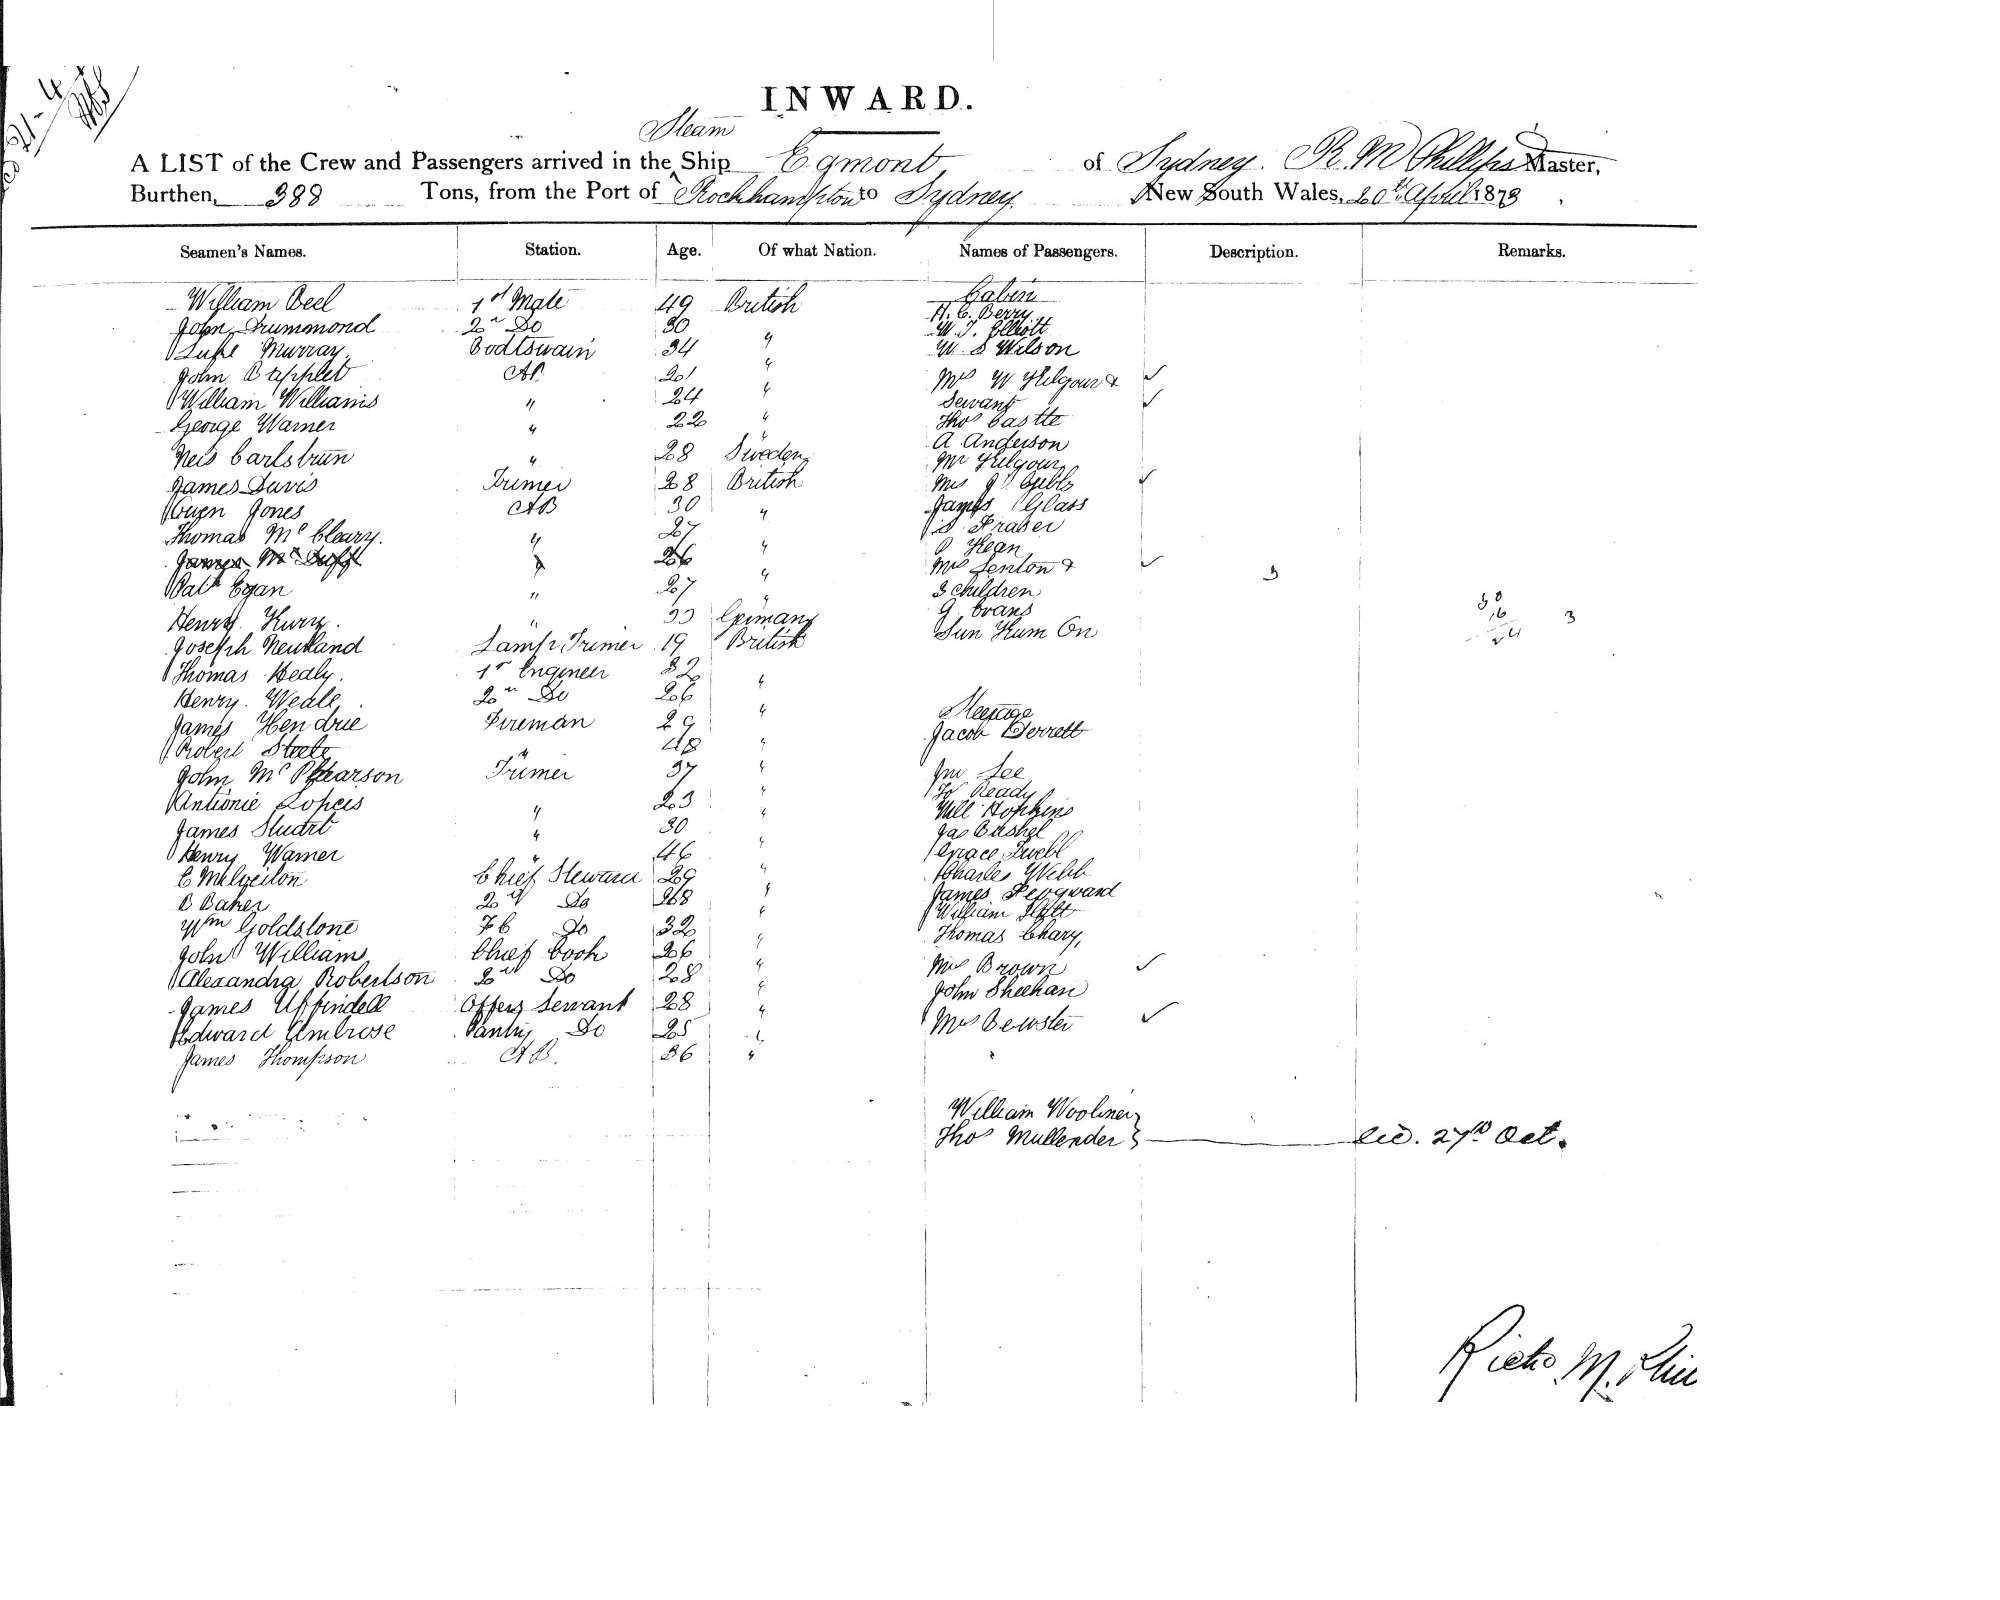 21-4
INWARD.
Steam
A LIST of the Crew and Passengers arrived in the Ship Egmont of Sydney. R. M Phillips Master,
Burthen, 388 Tons, from the Port of Rockhampton to Sydney New South Wales, 20th April 1873
Seamen's Names. Station. Age. Of what Nation. Names of Passengers. Description. Remarks.
William Beel 1st Mate 49 British Cabin
H. C. Berry
John Drummond 2n Do 30 W. J. Elliott
Luke Murray Boatswain 34 " W. S Wilson
John AB 21 " Mrs W Kilgour &
William Williams " 24 " Servant
George Warner " 22 " Thos Castle
A. Anderson
Neis Carlsbrun " 28 Sweden Mr Kilgour
James Davis Trimer 28 British Mrs
Owen Jones AB 30 " James Glass
Thomas McCleary. " 27 Fraser
James Mc Duff " 26 " Kean
Mrs Fenton &
Patk Egan " 27 " 3 children 3
Henry Kurz. " 33 Germany G. Evans
Joseph Neuland Lamp Trimer 19 British Sun Kum On
Thomas Healy. 1st Engineer 32 "
Henry. Weale 2n Do 26 "
Steerage
James Hendrie Fireman 29 Jacob Perrett
Robert Steele " 48 "
John McPhearson Trimer 37 " Jno Lee
Ready
Antionie Lopeis " 23 " Will Hopkins
James Stuart " 30 " Jas Bushel
Henry Warner " 46 " Grace
E Chief Steward 29 " Charles Webb
B Baker 2nd Do 28 " James
William
Wm Goldstone Do 32 " Thomas Chary,
John William Chief Cook 26 " Mrs Brown
Alexandra Robertson 2nd Do 28 " John Sheehan
James Uffindell Offers Servant 28 "
Edward Ambrose Pantry Do 25 " Mrs Bewster
James Thompson AB. 36 "
William Woolner
Thos Mullender } 27th Oct.
Richd. M. Phil